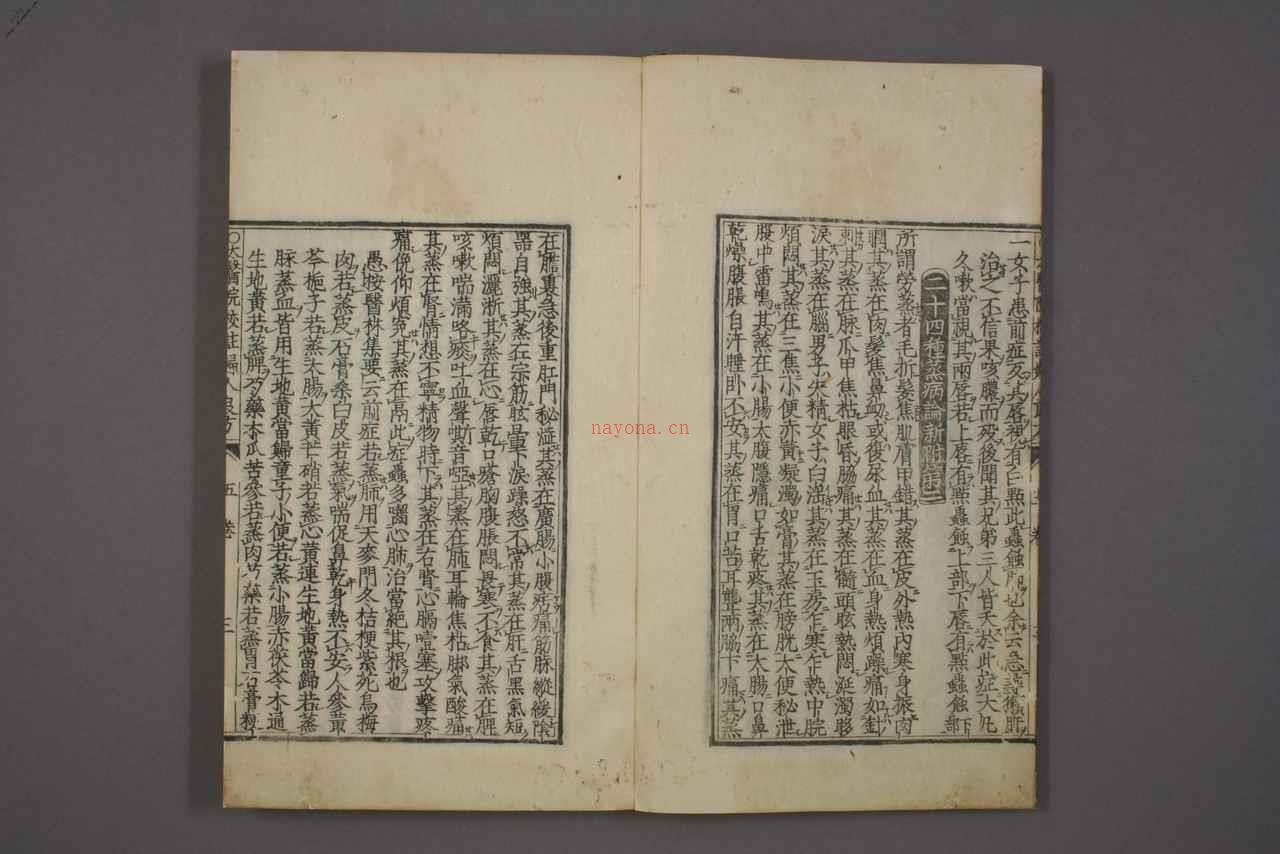 一女子患前症反其唇視有白點此蟲蝕肛也余云急請獲肝
治之不信果咳膿而歿後聞其兄弟三人皆夭於此症大凡
久嗽當視其兩唇若上唇有點蟲蝕上部下唇有點蟲蝕下部
二十四種蒸病論新附第二
所謂勞蒸者毛折髮焦肌膚甲錯其蒸在皮外熱內寒身振肉
瞤其蒸在肉髮焦鼻衄或復尿血其蒸在血身熱煩躁痛如針
刺其蒸在脉爪甲焦枯眼昏脇痛其蒸在髓頭眩熱悶涎濁眵
淚其蒸在腦男子失精女子白淫其蒸在玉房乍寒乍熱中脘
煩悶其蒸在三焦小便赤黃凝濁如膏其蒸在膀胱大便秘泄
腹中雷鳴其蒸在小腸大腹隱痛口舌乾疼其蒸在大腸口鼻
乾燥腹脹自汗睡卧不安其蒸在胃口苦耳聾兩脇下痛其蒸
在膽裏急後重肛門秘澁其蒸在廣腸小腹疞痛筋脉縱緩陰
器自強其蒸在宗筋眩暈下淚躁怒不常其蒸在肝舌黑氣短
煩悶灑淅其蒸在心唇乾口瘡胸腹脹悶畏寒不食其蒸在脾
咳嗽喘滿咯痰吐血聲嘶音啞其蒸在肺耳輪焦枯脚氣酸痛
其蒸在腎情想不寧精物時下其蒸在右腎心膈噎塞攻擊疼
痛俛仰煩寃其蒸在鬲此症蟲多嚙心肺治當絕其根也
愚按醫林集要云前症若蒸肺用天麥門冬桔梗紫苑烏梅
肉若蒸皮石膏桑白皮若蒸氣喘促鼻乾身熱不安人參黃
芩梔子若蒸大腸大黃芒硝若蒸心黃連生地黃當歸若蒸
脉蒸血皆用生地黃當歸童子小便若蒸小腸赤茯苓木通
生地黃若蒸脾芍藥木瓜苦參若蒸肉芍藥若蒸胃石膏粳
五卷
三
nayona.cn